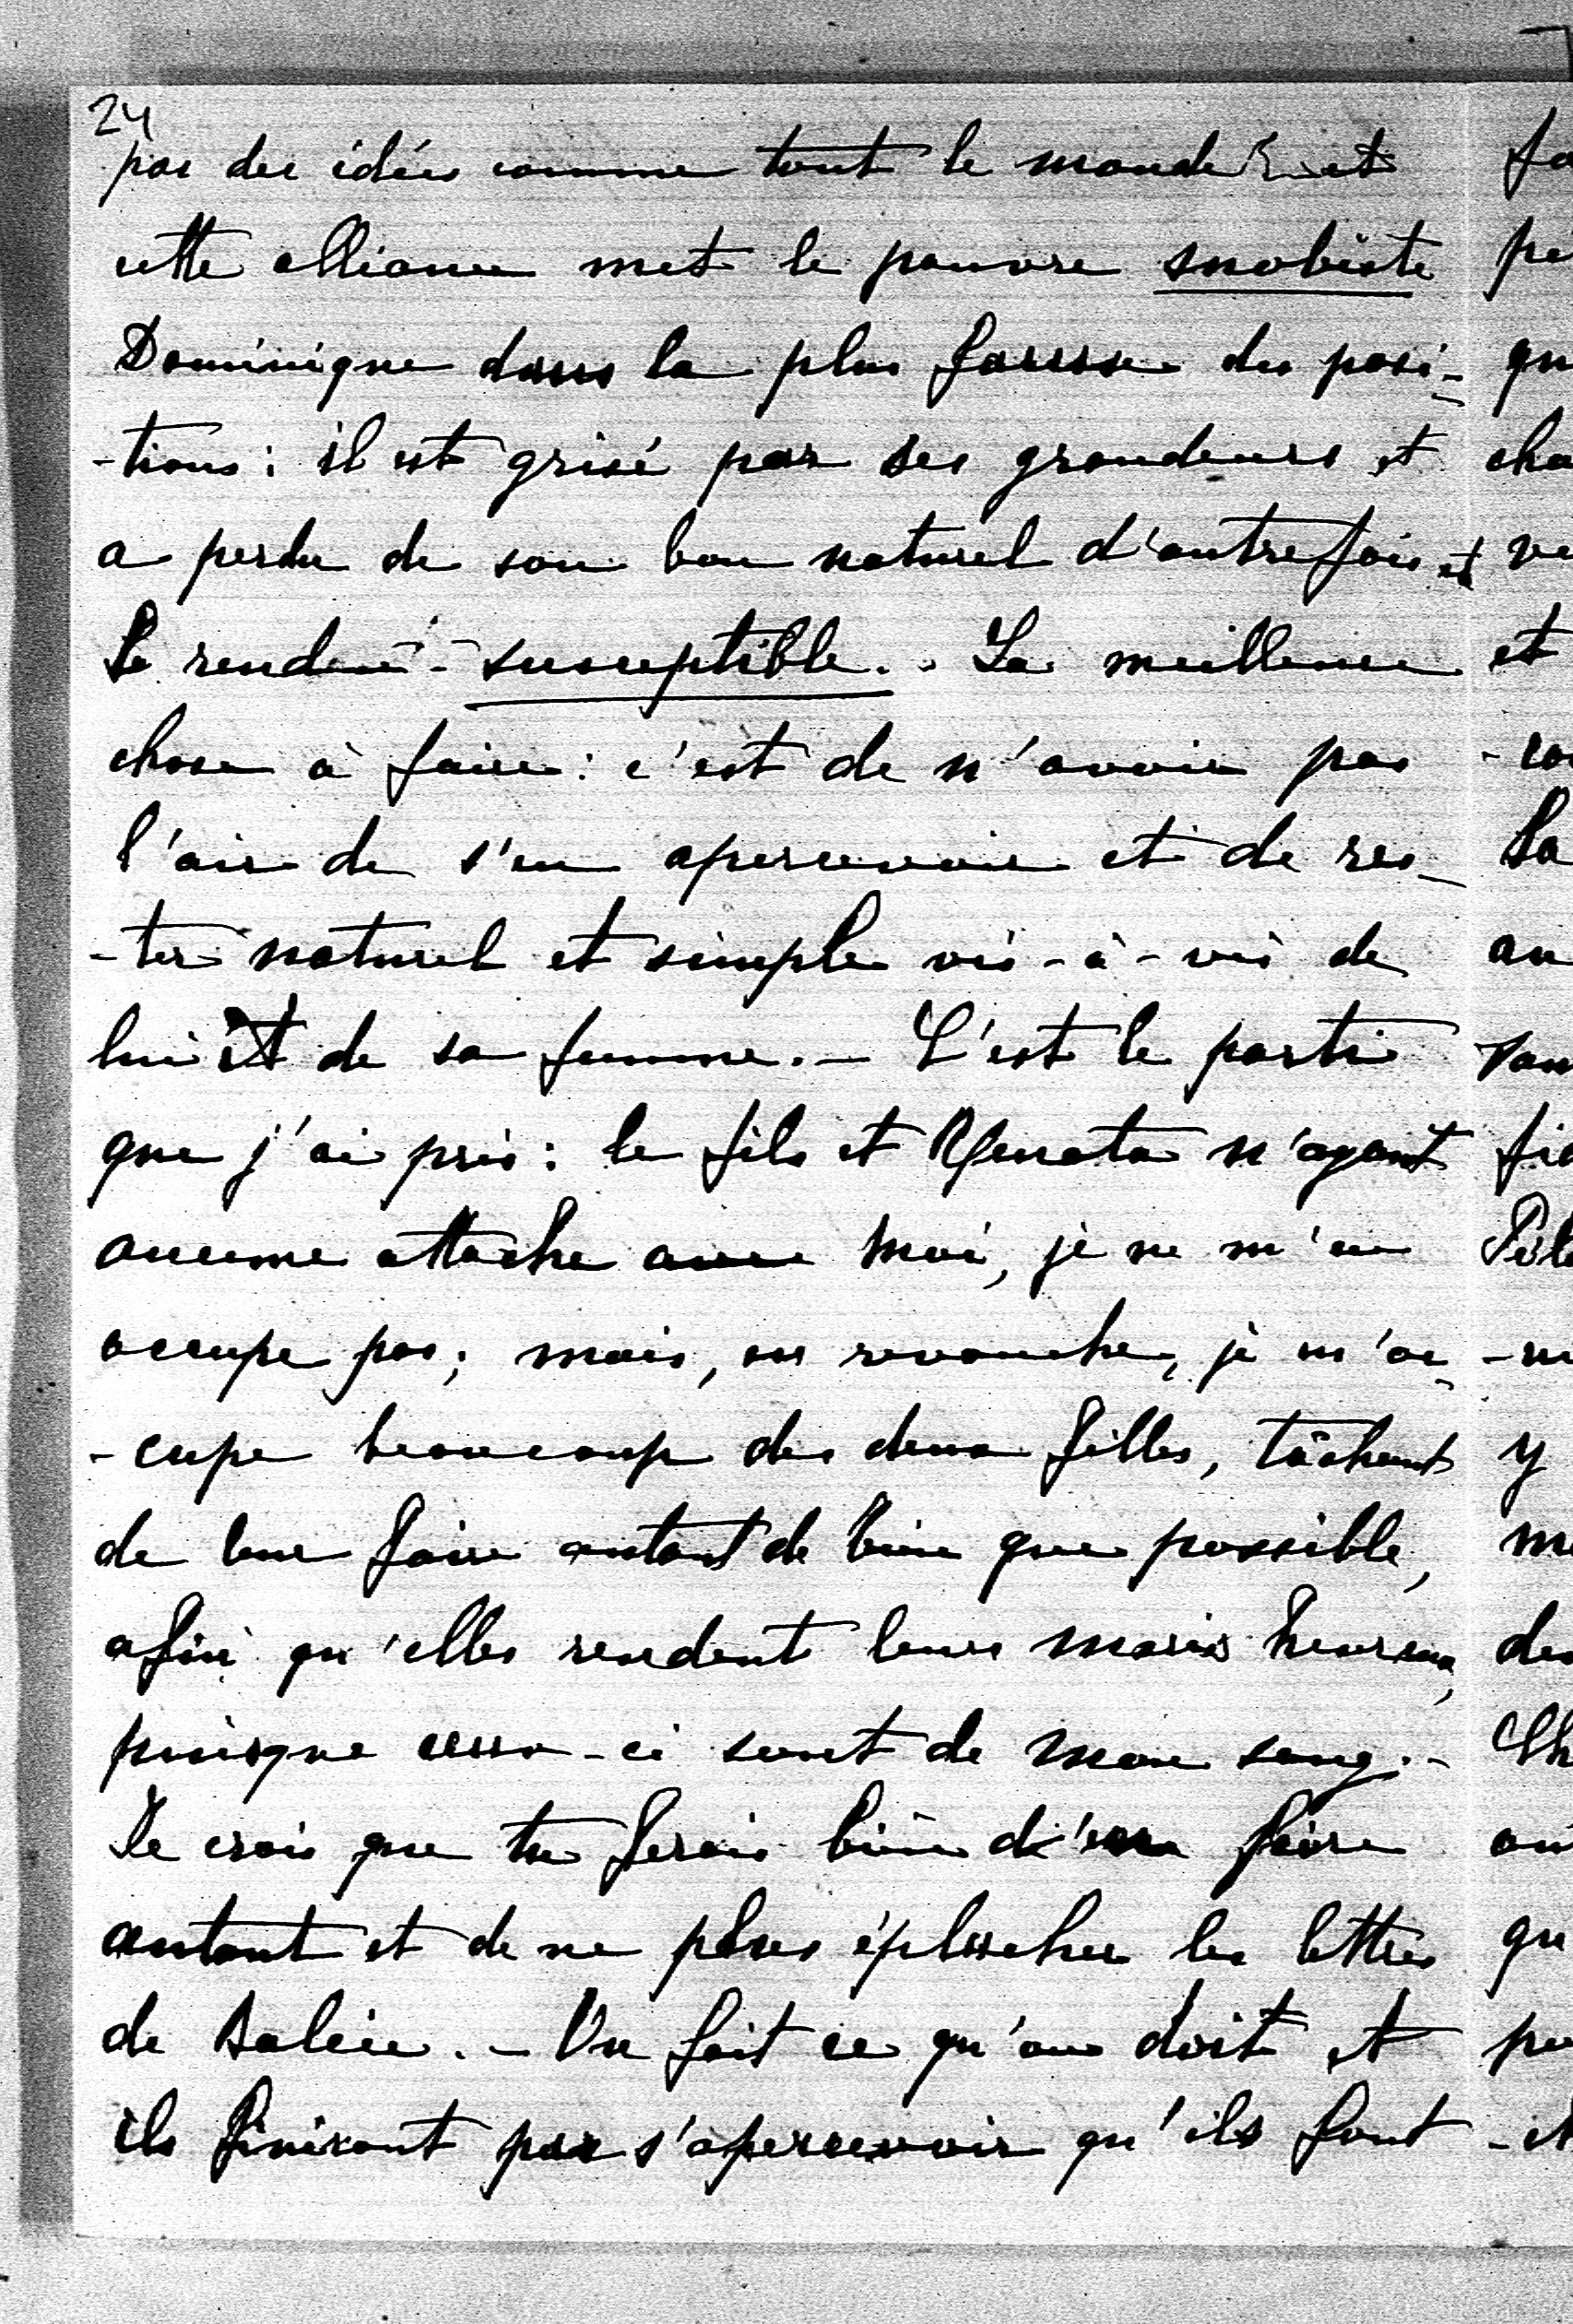 24
pas des idées comme tout le monde et
cette alliance met le pauvre snobiste
Dominique dans la plus fausse des posi-
-tions: il est grisé par ses grandeurs et
a perdu de son bon naturel d'autrefois et
le rendent susceptible. La meilleure
chose à faire: c'est de n'avoir pas
l'air de s'en apercevoir et de res-
-ter naturel et simple vis-à-vis de
lui et de sa femme. — C'est le parti
que j'ai pris: le fils et Renata n'ayant
aucune attache avec moi, je ne m'en
occupe pas; mais, en revanche, je m'oc-
-cupe beaucoup des deux filles, tâchant
de leur faire autant de bien que possible,
afin qu'elles rendent leurs maris heureux,
puisque ceux-ci sont de mon sang. -
Je crois que tu ferais bien d'en faire
autant et de ne plus éplucher les lettres
de . — On fait ce qu'on doit et
ils finiront par s'apercevoir qu'ils font